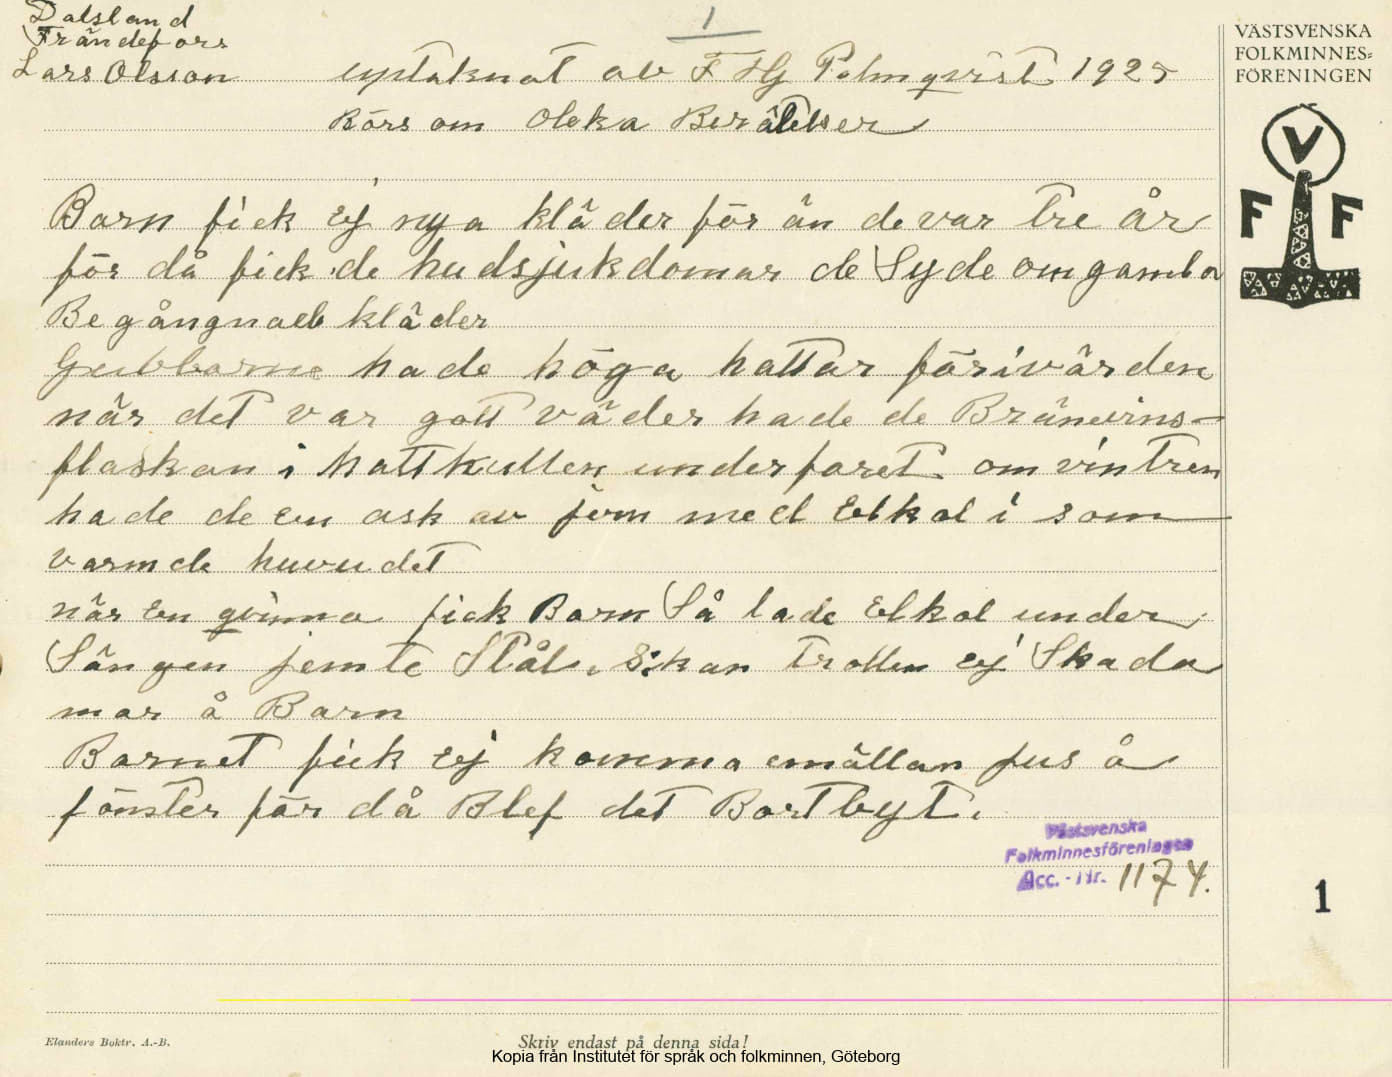 Dalsland
Frändefors
Lars Olsson
1
upteknat av F Hj Palmqvist 1925
Börs om Oleka Berättelser
VÄSTSVENSKA
FOLKMINNES-
FÖRENINGEN
V
F F
Barn fick ej nya kläder för än de var tre år
för då fick de hudsjukdomar de Syde om gamla
Begångnaeb kläder
Gubbarne hade höga hattar förivärden
när det var gott väder hade de Bränevins-
flaskan i hattkullen underfaret om vintren
hade de en ask av jern med Elkol i som
varmde huvudet
när En qvinna fick Barn Så lade Elkol under
Sängen jemte Stål, S:kan trollen ej Skada
mar å Barn
Barnet fick ej komma emällan jus å
fönster för då Blef det Bortbyt.
Västsvenska
Folkminnesföreningen
Acc. - Nr. 1174.
1
Elanders Boktr. A.-B.
Skriv endast på denna sida!
Kopia från Institutet för språk och folkminnen, Göteborg